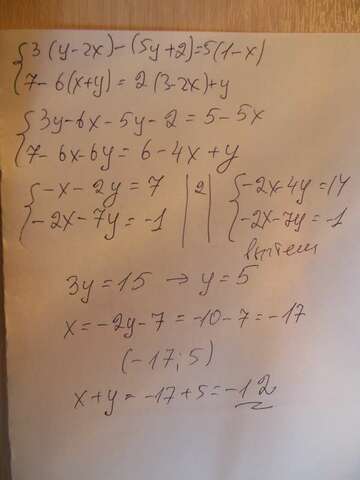 {3(y-2x)-(5y+2)=5(1-x)
7-6(x+y)=2(3-2x)+y
{3y-6x-5y-2=5-5x
7-6x-6y=6-4x+y
{-x-2y=7 |2| {-2x-4y=14
-2x-7y=-1 | | -2x-7y=-1
вычтем
3y=15 → y=5
x=-2y-7=-10-7=-17
(-17;5)
x+y=-17+5=-12